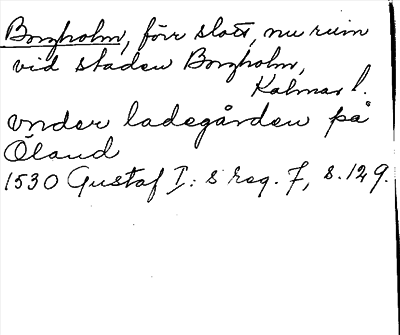 Borgholm, förr slott, nu ruin
vid staden Borgholm,
Kalmar l.
vnder ladegården på
Öland
1530 Gustaf I:s reg. 7, s. 129.